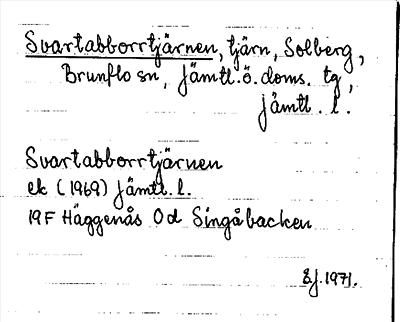 Svartabborrtjärnen, tjärn, Solberg,
Brunflo sn, Jämtl.ö.doms. tg,
Jämtl. l.
Svartabborrtjärnen
ek (1969) Jämtl. l.
19F Häggenås 0d Singåbacken
1971.